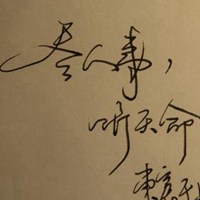 尽人事,
听天命